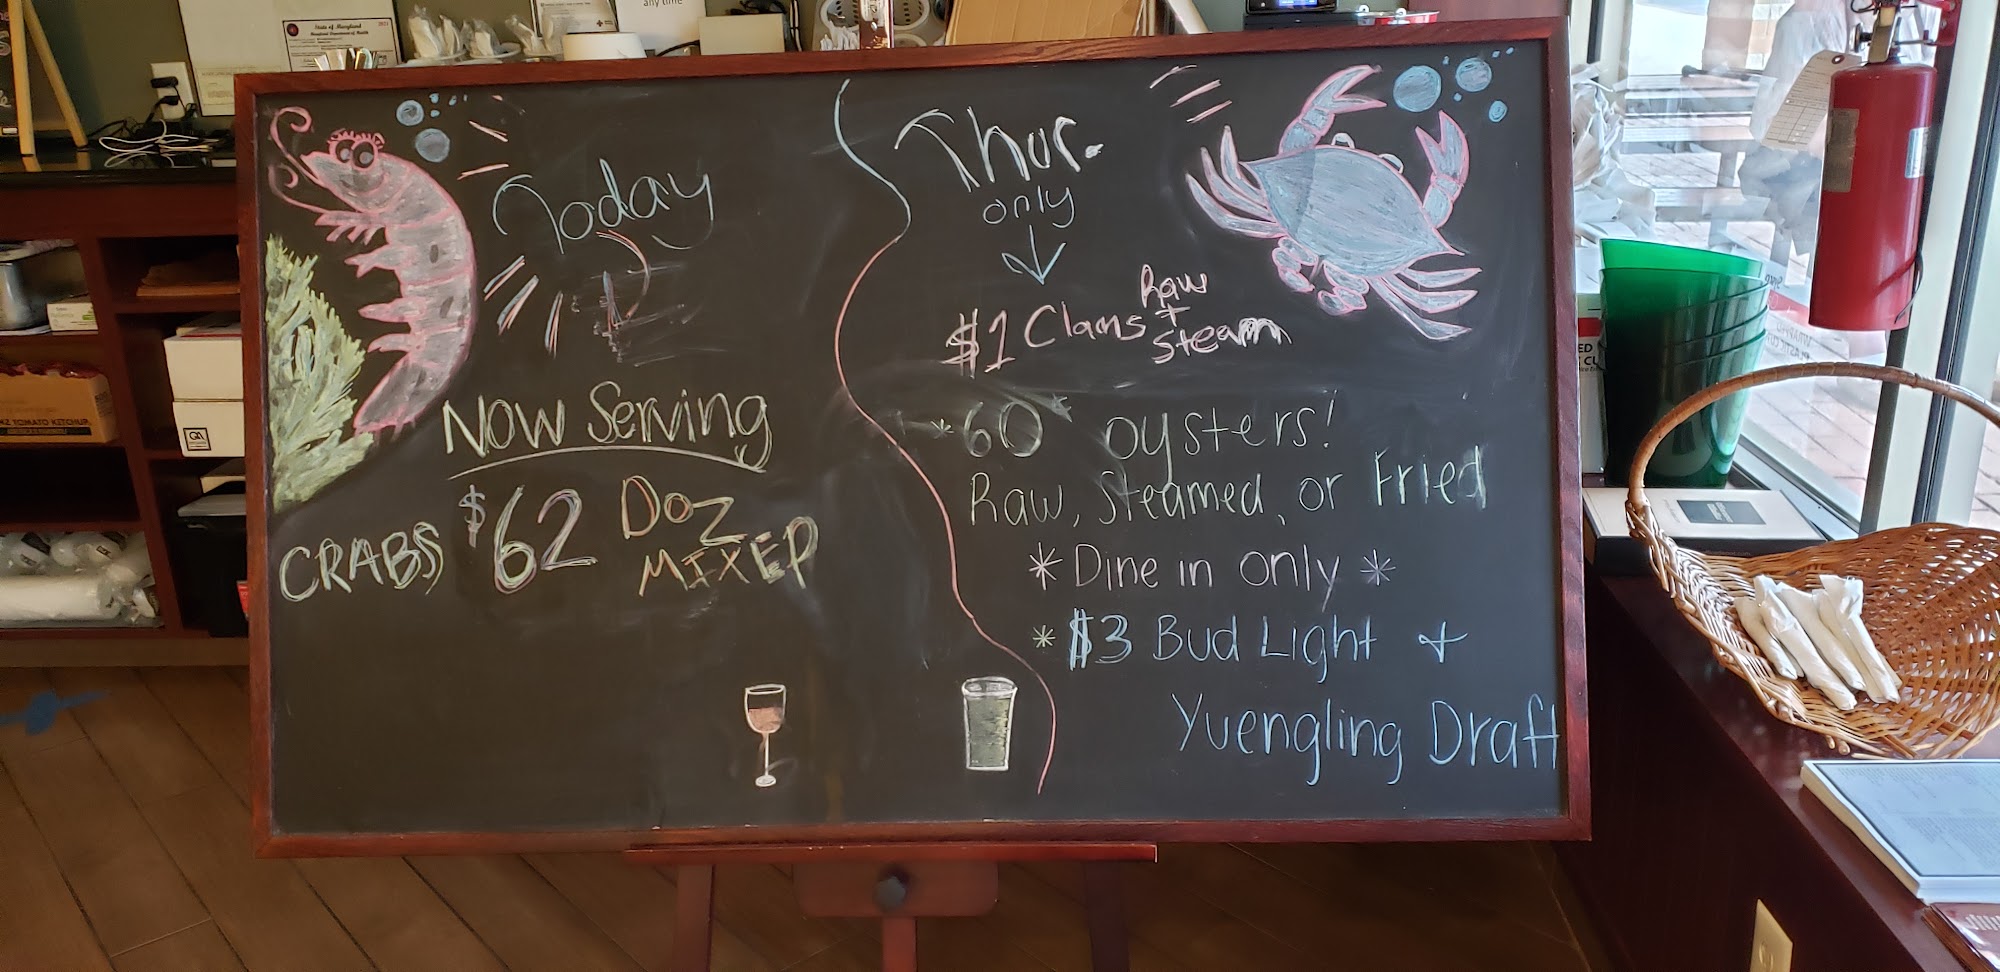 any time
State of Maryland
Maryland Department of Health
Today
Now Serving
CRABS $62 Doz
MIXED
Thur.
only
$1 Clams Raw
+
Steam
*60* oysters!
Raw, Steamed, or Fried
* Dine in only *
* $3 Bud Light +
Yuengling Draft
TOMATO KETCHUP